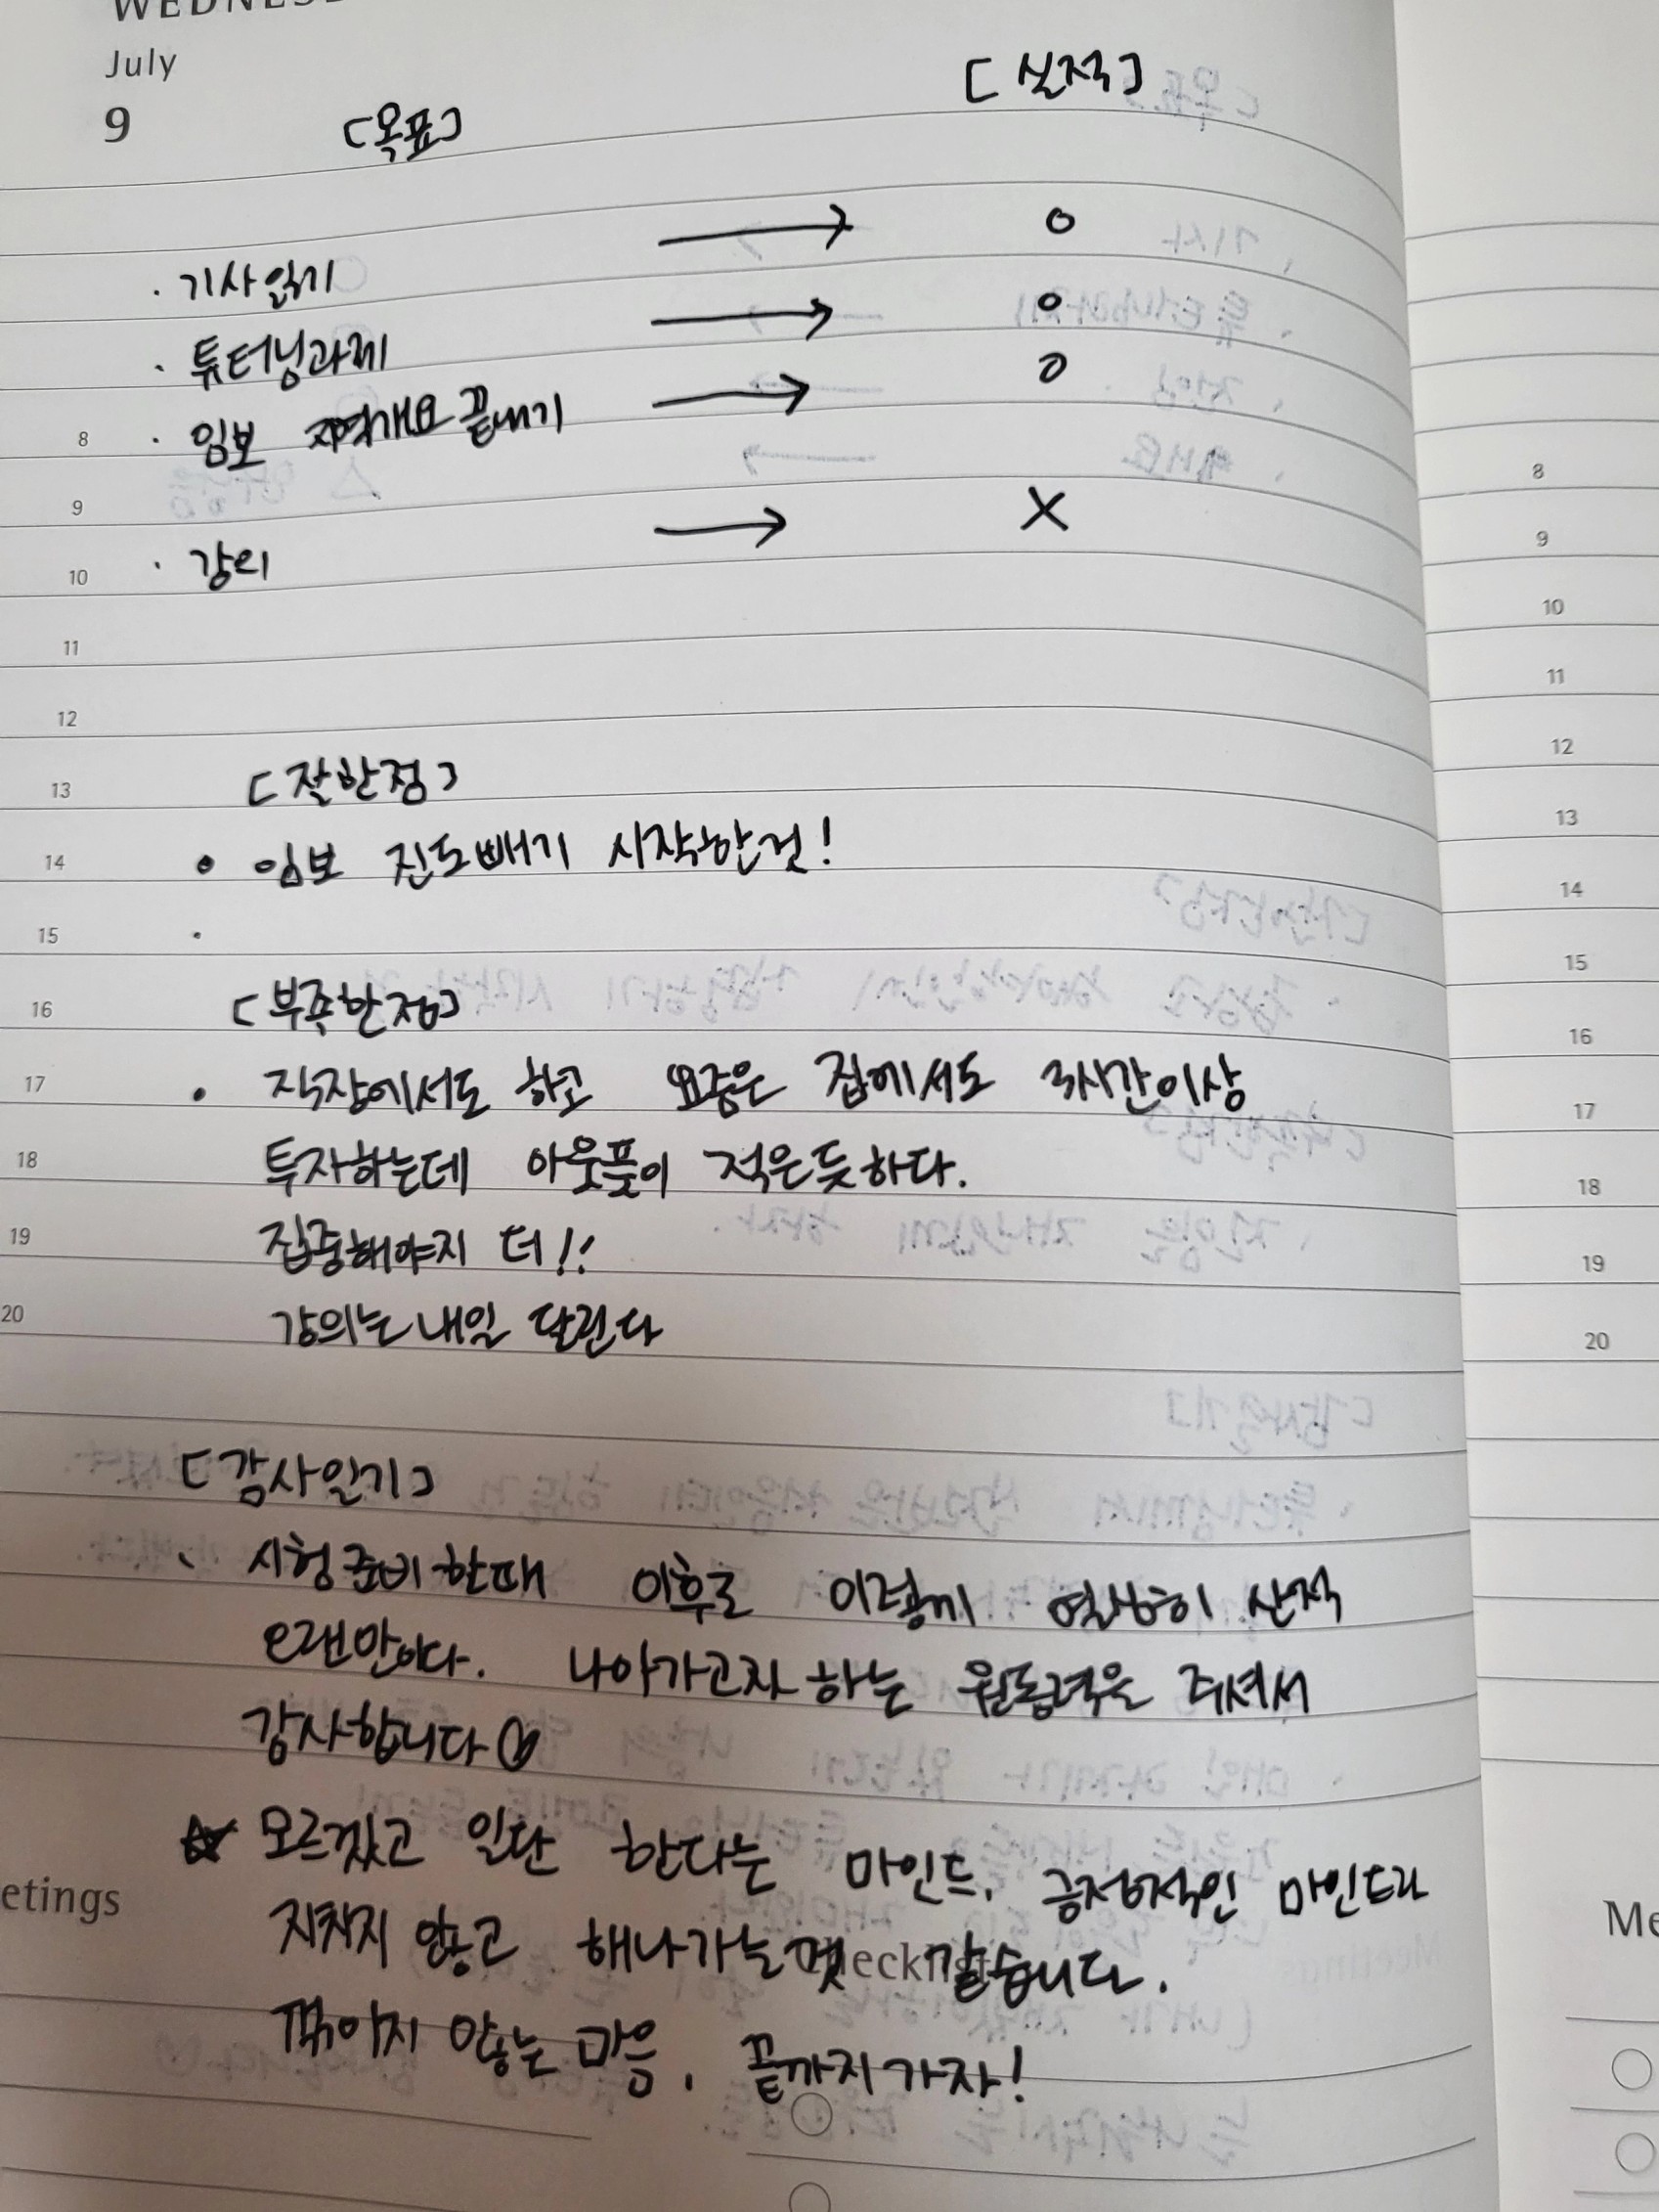 WEDNESD
July
9
[목표] [실적]
· 기사읽기 → O
· 튜터링과제 → O
8 · 임보 지역개요 끝내기 → O
9
10 · 강의 → X
11
12
13 [잘한점]
14 • 임보 진도빼기 시작한것!
15 ·
16 [부족한점]
17 • 직장에서도 하고 요즘은 집에서도 3시간이상
18 투자하는데 아웃풋이 적은듯하다.
19 집중해야지 더!!
20 강의는 내일 달린다
[감사일기]
· 시험준비한때 이후로 이렇게 열심히 산적
오랜만이다. 나아가고자 하는 원동력을 주셔서
감사합니다♡
☆ 모르겠고 일단 한다는 마인드, 긍정적인 마인드라
etings
지치지 않고 해나가는것 같습니다.
Checklist
꺾이지 않는 마음, 끝까지가자!
8
9
10
11
12
13
14
15
16
17
18
19
20
Me